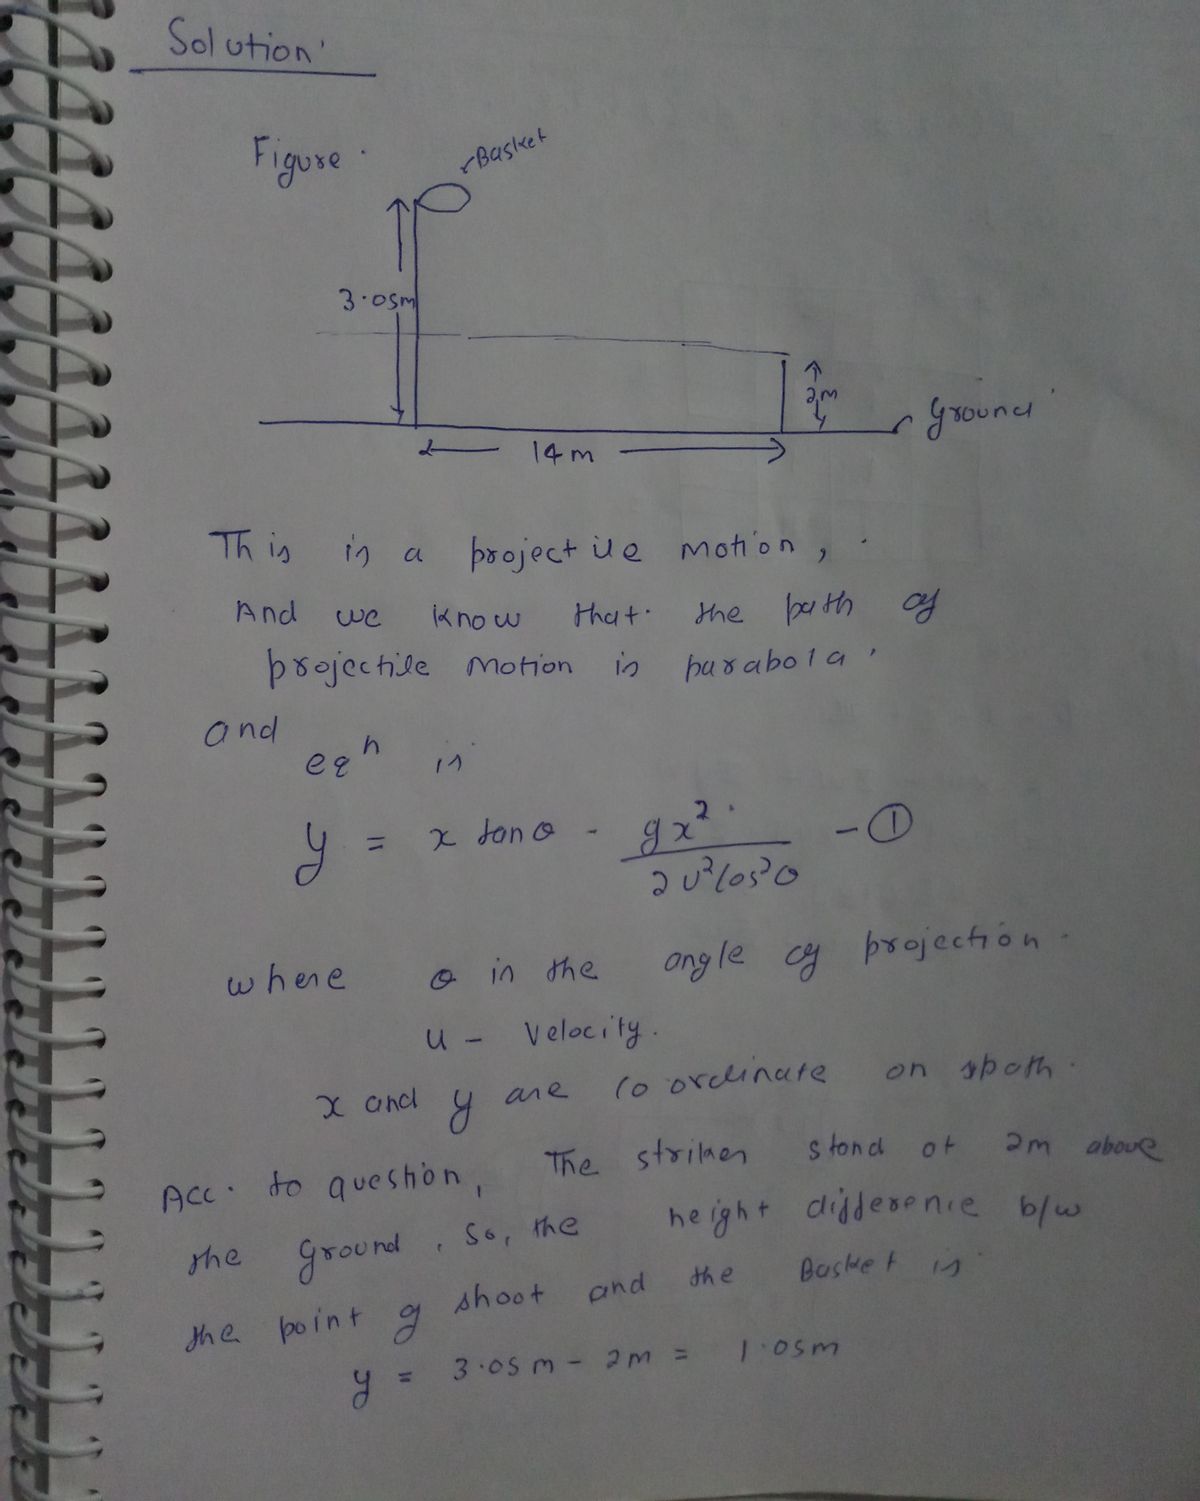 Solution
Figure.
Basket
3.05m
2m
Ground
14m
This is a projectile motion,
And we know that the path of
projectile motion is parabola.
and
eqⁿ is
y = x tanθ - gx² / 2u²cos²θ - ①
where θ is the angle of projection.
u - velocity.
x and y are coordinate on path.
Acc. to question, The striker stand at 2m above
the ground. So, the height difference b/w
the point of shoot and the Basket is
y = 3.05m - 2m = 1.05m